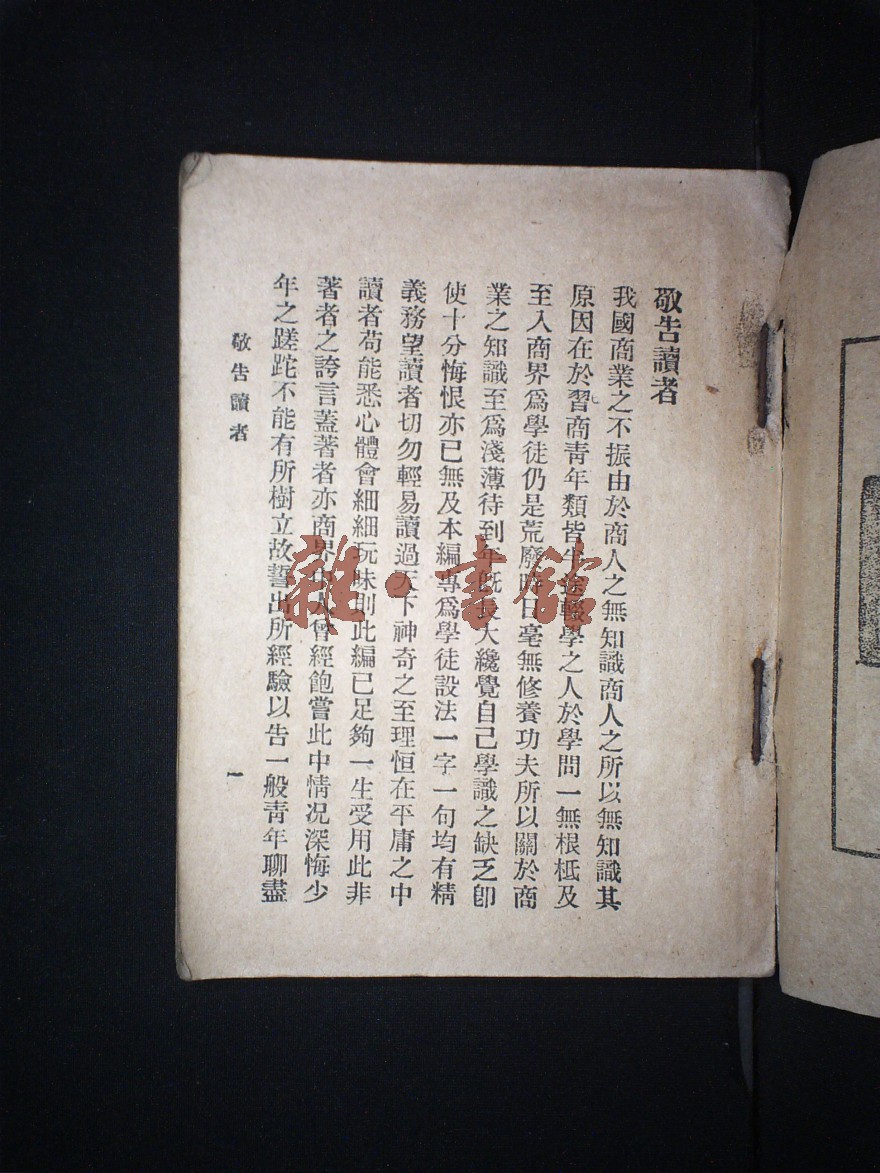 敬告讀者
我國商業之不振由於商人之無知識商人之所以無知識其
原因在於習商靑年類皆半途輟學之人於學問一無根柢及
至入商界爲學徒仍是荒廢時日毫無修養功夫所以關於商
業之知識至爲淺薄待到年旣長大纔覺自己學識之缺乏卽
使十分悔恨亦已無及本編專爲學徒設法一字一句均有精
義務望讀者切勿輕易讀過天下神奇之至理恒在平庸之中
讀者苟能悉心體會細細玩味則此編已足夠一生受用此非
著者之誇言蓋著者亦商界中人曾經飽嘗此中情况深悔少
年之蹉跎不能有所樹立故誓出所經驗以告一般靑年聊盡
敬告讀者
一
雜·書館